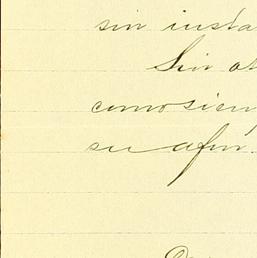 sin insta
Sin ot
como siem
su afm.